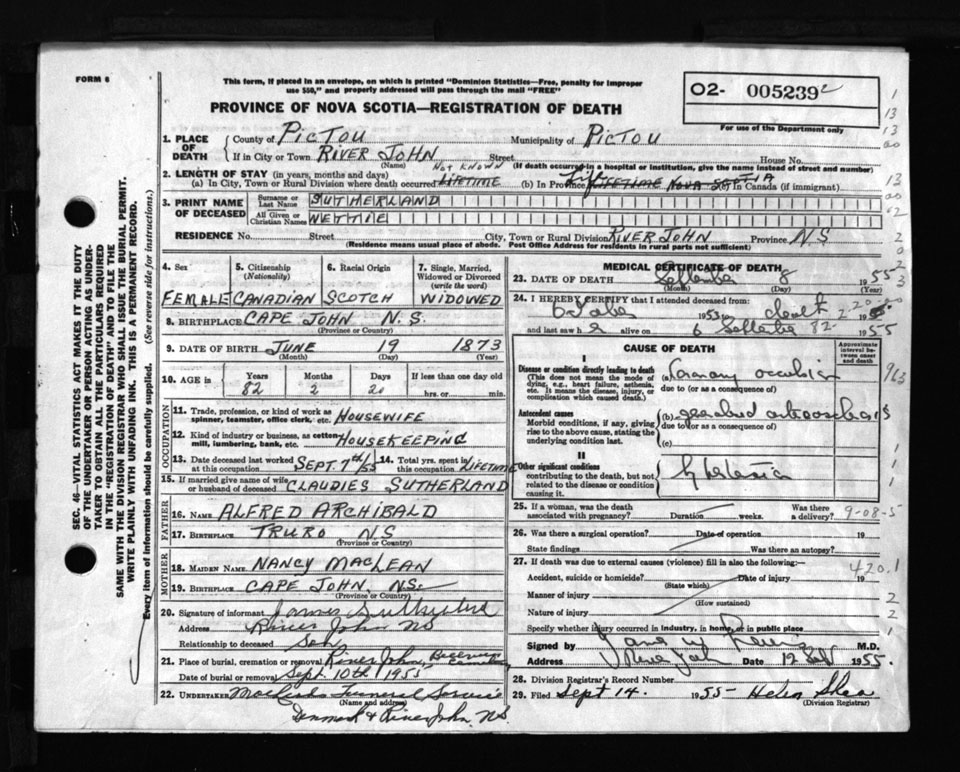 FORM 6
This form, if placed in an envelope, on which is printed "Dominion Statistics—Free, penalty for improper
use $50," and properly addressed will pass through the mail "FREE"
PROVINCE OF NOVA SCOTIA—REGISTRATION OF DEATH
O2- 005239 2
For use of the Department only
SEC. 46—VITAL STATISTICS ACT MAKES IT THE DUTY
OF THE UNDERTAKER OR PERSON ACTING AS UNDER-
TAKER TO OBTAIN ALL THE PARTICULARS REQUIRED
IN THE "REGISTRATION OF DEATH" AND TO FILE THE
SAME WITH THE DIVISION REGISTRAR WHO SHALL ISSUE THE BURIAL PERMIT.
WRITE PLAINLY WITH UNFADING INK. THIS IS A PERMANENT RECORD.
Every item of information should be carefully supplied. (See reverse side for instructions.)
1. PLACE OF DEATH
County of PICTOU Municipality of PICTOU
If in City or Town RIVER JOHN Street House No.
(Name) (If death occurred in a hospital or institution, give the name instead of street and number)
2. LENGTH OF STAY (in years, months and days)
NOT KNOWN
(a) In City, Town or Rural Division where death occurred LIFETIME (b) In Province LIFETIME NOVA SCOTIA In Canada (if immigrant)
3. PRINT NAME OF DECEASED
Surname or Last Name SUTHERLAND
All Given or Christian Names NETTIE
RESIDENCE No. Street City, Town or Rural Division RIVER JOHN Province N.S
(Residence means usual place of abode. Post Office Address for residents in rural parts not sufficient)
4. Sex
FEMALE
5. Citizenship (Nationality)
CANADIAN
6. Racial Origin
SCOTCH
7. Single, Married, Widowed or Divorced (write the word)
WIDOWED
8. BIRTHPLACE CAPE JOHN N.S.
(Province or Country)
9. DATE OF BIRTH JUNE 19 1873
(Month) (Day) (Year)
10. AGE in Years Months Days If less than one day old
82 2 20 hrs. or min.
OCCUPATION
11. Trade, profession, or kind of work as spinner, teamster, office clerk, etc. HOUSEWIFE
12. Kind of industry or business, as cotton mill, lumbering, bank, etc. HOUSEKEEPING
13. Date deceased last worked at this occupation SEPT. 7th/55 14. Total yrs. spent in this occupation LIFETIME
15. If married give name of wife or husband of deceased CLAUDIES SUTHERLAND
FATHER
16. NAME ALFRED ARCHIBALD
17. BIRTHPLACE TRURO N.S
(Province or Country)
MOTHER
18. MAIDEN NAME NANCY MACLEAN
19. BIRTHPLACE CAPE JOHN, NS.
(Province or Country)
20. Signature of informant James Sutherland
Address River John NS
Relationship to deceased Son
21. Place of burial, cremation or removal River John,
Date of burial or removal Sept. 10th 1955
22. UNDERTAKER Funeral Service
(Name and address)
Denmark & River John, NS.
MEDICAL CERTIFICATE OF DEATH
23. DATE OF DEATH September 8 1955
(Month) (Day) (Year)
24. I HEREBY CERTIFY that I attended deceased from:
1953 to death
and last saw h alive on 1955
CAUSE OF DEATH
Approximate interval between onset and death
I
Disease or condition directly leading to death
(This does not mean the mode of dying, e.g., heart failure, asthenia, etc. It means the disease, injury, or complication which caused death.)
(a) Coronary occlusion
due to (or as a consequence of)
Antecedent causes
Morbid conditions, if any, giving rise to the above cause, stating the underlying condition last.
(b) arteriosclerosis
due to (or as a consequence of)
(c)
II
Other significant conditions
contributing to the death, but not related to the disease or condition causing it.
25. If a woman, was the death associated with pregnancy? Duration weeks. Was there a delivery?
26. Was there a surgical operation? Date of operation 19
State findings Was there an autopsy?
27. If death was due to external causes (violence) fill in also the following:—
420.1
Accident, suicide or homicide? Date of injury 19
(State which)
Manner of injury
(How sustained)
Nature of injury
Specify whether injury occurred in industry, in home, or in public place
Signed by M.D.
Address River John Date 12 Sept 1955.
28. Division Registrar's Record Number
29. Filed Sept 14. 1955 Helen Shea
(Division Registrar)